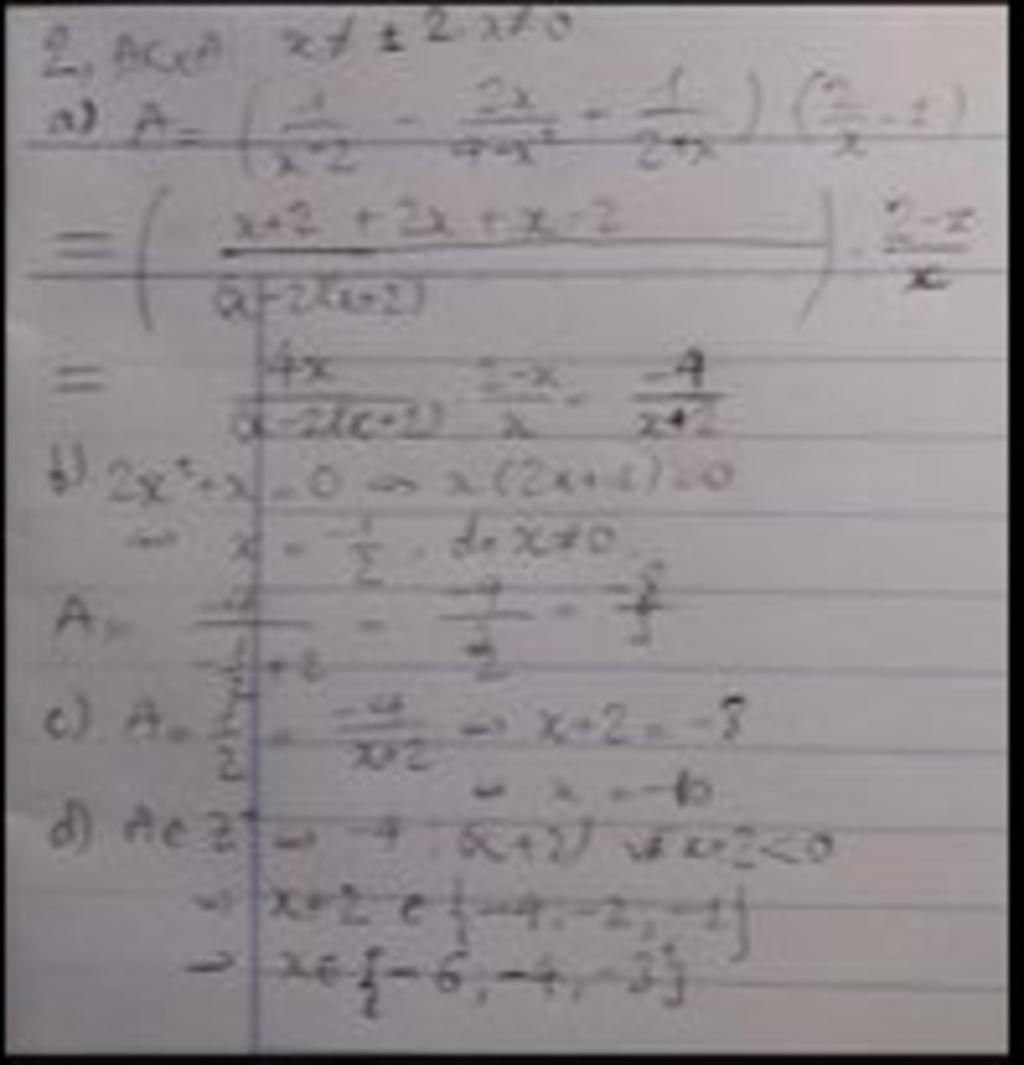 2, ĐKXĐ x ≠ ± 2 x ≠ 0
a) A = ( 1/(x-2) - 2x/(4-x²) + 1/(2+x) ) (2/x - 1)
= ( (x+2 + 2x + x-2)/((x-2)(x+2)) ) . (2-x)/x
= 4x/((x-2)(x+2)) . (2-x)/x = -4/(x+2)
b) 2x² + x = 0 → x(2x+1) = 0
→ x = -1/2 do x ≠ 0
A = -4/(-1/2 + 2) = -4/(3/2) = -8/3
c) A = 1/2 = -4/(x+2) → x+2 = -8
→ x = -10
d) A ∈ Z⁺ → -4 ⋮ (x+2) và x+2 < 0
→ x+2 ∈ {-4, -2, -1}
→ x ∈ {-6, -4, -3}